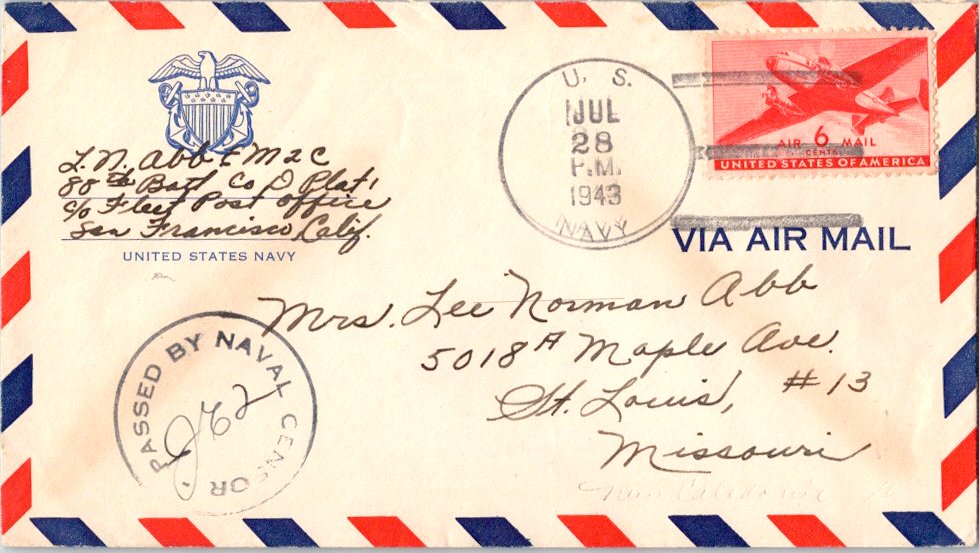 L. N. Abb EM2C
88th Batt Co D Plat 1
c/o Fleet Post Office
San Francisco, Calif.
UNITED STATES NAVY
U. S.
JUL
28
P.M.
1943
NAVY
AIR 6 MAIL
CENTS
UNITED STATES OF AMERICA
VIA AIR MAIL
Mrs. Lee Norman Abb
5018A Maple Ave.
St. Louis, #13
Missouri
PASSED BY NAVAL CENSOR
New Caledonia